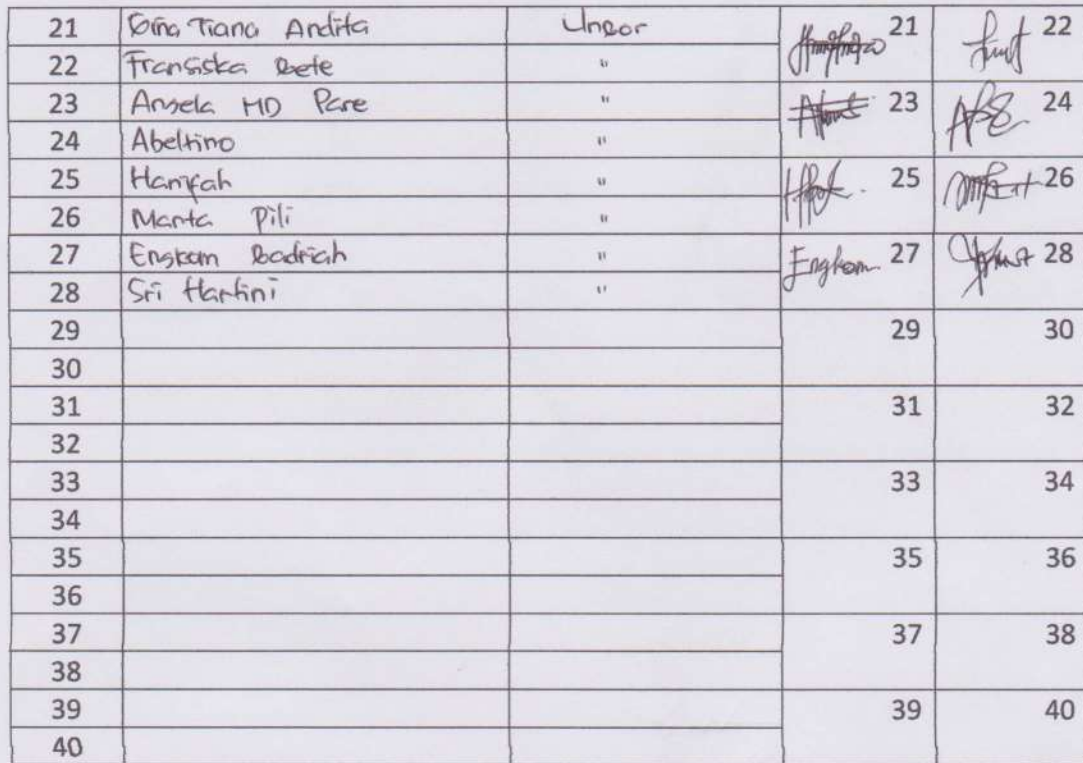 21 Tiana Andita 21 22
22 Fransiska Bete "
23 Angela MD Pare " 23 24
24 Abeltino "
25 Hanifah " 25 26
26 Marta Pili "
27 Engkom Badriah " Engkom 27 28
28 Sri Hartini "
29 29 30
30
31 31 32
32
33 33 34
34
35 35 36
36
37 37 38
38
39 39 40
40